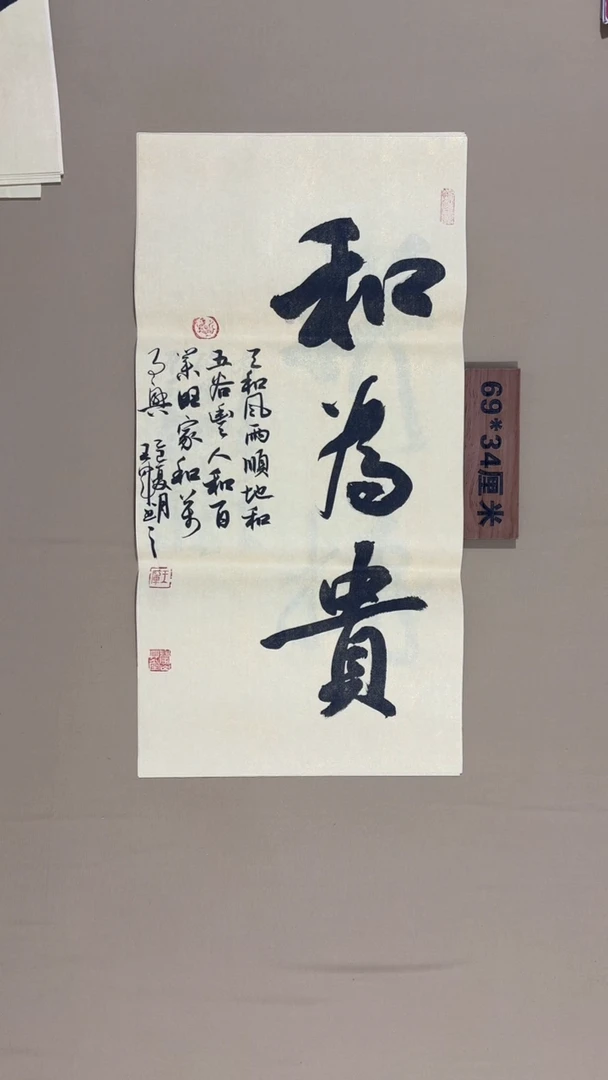 和為貴
天和風雨順地和
五谷豐人和百
業旺家和萬
事興
69*34厘米